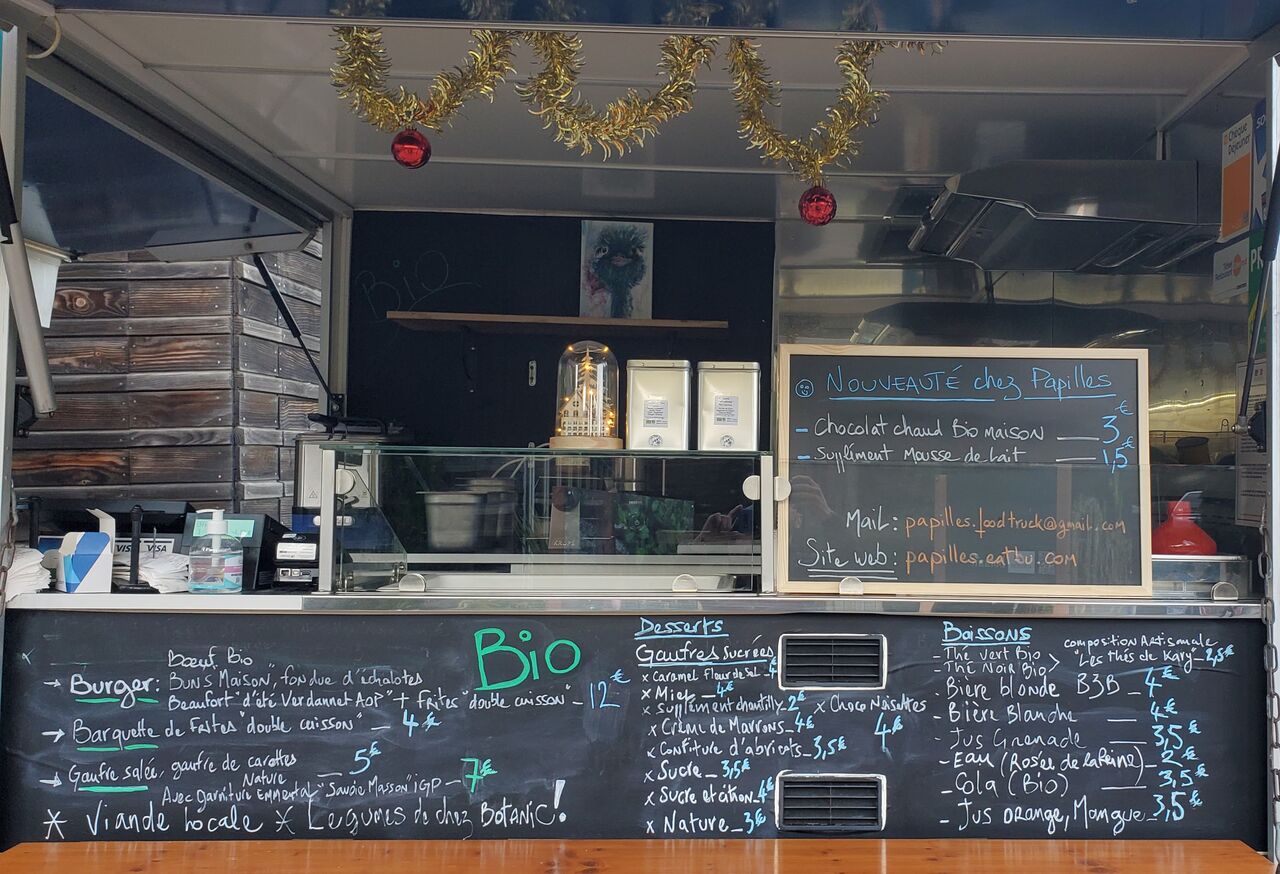 Chèque
Déjeuner
BiO
NOUVEAUTÉ chez Papilles
- Chocolat chaud Bio MAISON __ 3€
- Supplément Mousse de lait __ 1,5€
MaiL : papilles.foodtruck@gmail.com
Site web : papilles.eatbu.com
VISA VISA
Bio
Bœuf Bio
→ Burger : BUNS MAISON, fondue d'échalotes
Beaufort "d'été Verdannet AOP" + frites "double cuisson" - 12€
→ Barquette de frites "double cuisson" - 4€
→ Gaufre salée, gaufre de carottes
Nature __ 5€
Avec garniture Emmental "Savoie Masson" iGP - 7€
* Viande Locale * Légumes de chez BOTANIC !
Desserts
Gaufres Sucrées
x Caramel Fleur de Sel - 4€
x Miel - 4€
x Supplément chantilly 2€
x Choco Noisettes 4€
x Crème de Marrons - 4€
x Confiture d'abricots - 3,5€
x Sucre - 3,5€
x Sucre et citron - 4€
x Nature - 3€
Boissons
- Thé vert Bio
- Thé Noir Bio > composition Artisanale "Les thés de Kary" - 2,5€
- Bière blonde B3B - 4€
- Bière Blanche __ 4€
- Jus Grenade __ 3,5€
- Eau (Rosée de la Reine) - 2€
- Cola (Bio) __ 3,5€
- Jus orange, Mangue - 3,5€